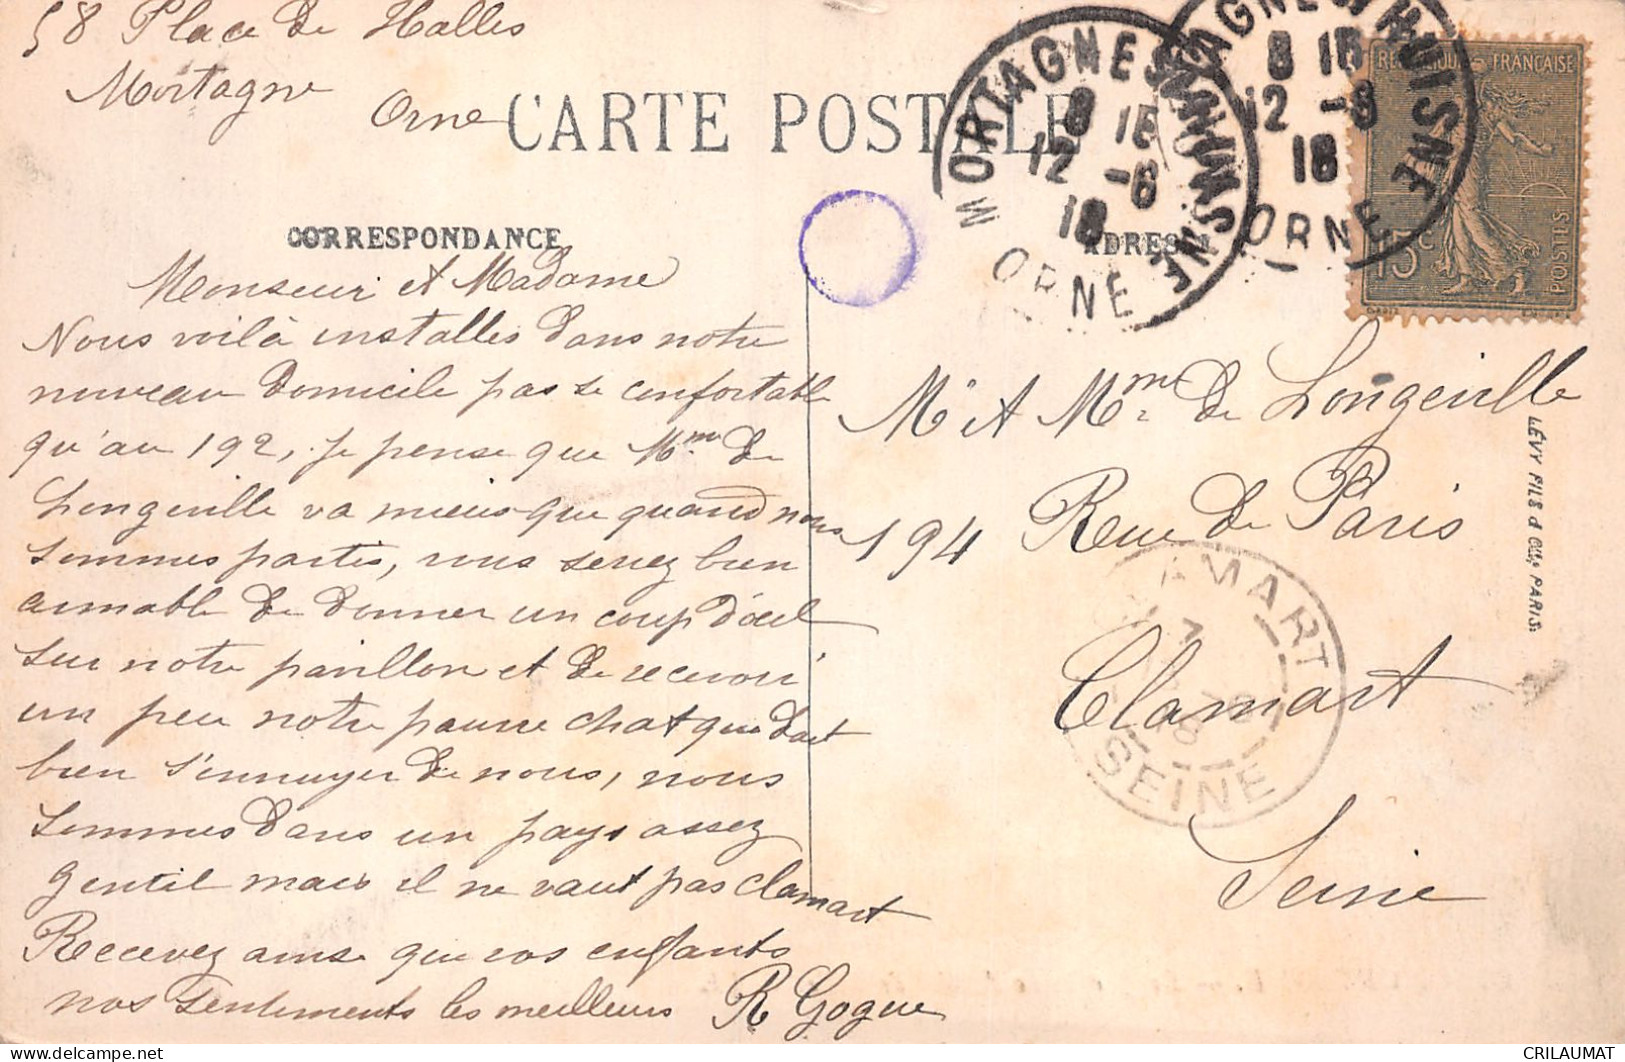 58 Place de Halles
Mortagne
Orne
CARTE POSTALE
MORTAGNE SUR HUISNE
8 15
12 -8
18
ORNE
8 15
12 -8
18
ORNE
REPUBLIQUE FRANÇAISE
15c
POSTES
CORRESPONDANCE
ADRESSE
Monseur et Madame
Nous voilà installes dans notre
nouveau domicile pas se confortable
qu'au 192, je pense que Mme de
Longeville va mieus que quand nous
sommes partis, vous serez bien
aimable de donner un coup d'œil
sur notre pavillon et de recevoir
un peu notre pauvre chat que doit
bien s'ennuyer de nous, nous
sommes dans un pays assez
gentil mais il ne vaut pas Clamart
Recevez ainse que vos enfants
nos sentiments les meilleurs R Gogue
Mr et Mme de Longeville
194 Rue de Paris
Clamart
Seine
CLAMART
SEINE
LÉVY FILS & Cie, PARIS.
delcampe.net
CRILAUMAT